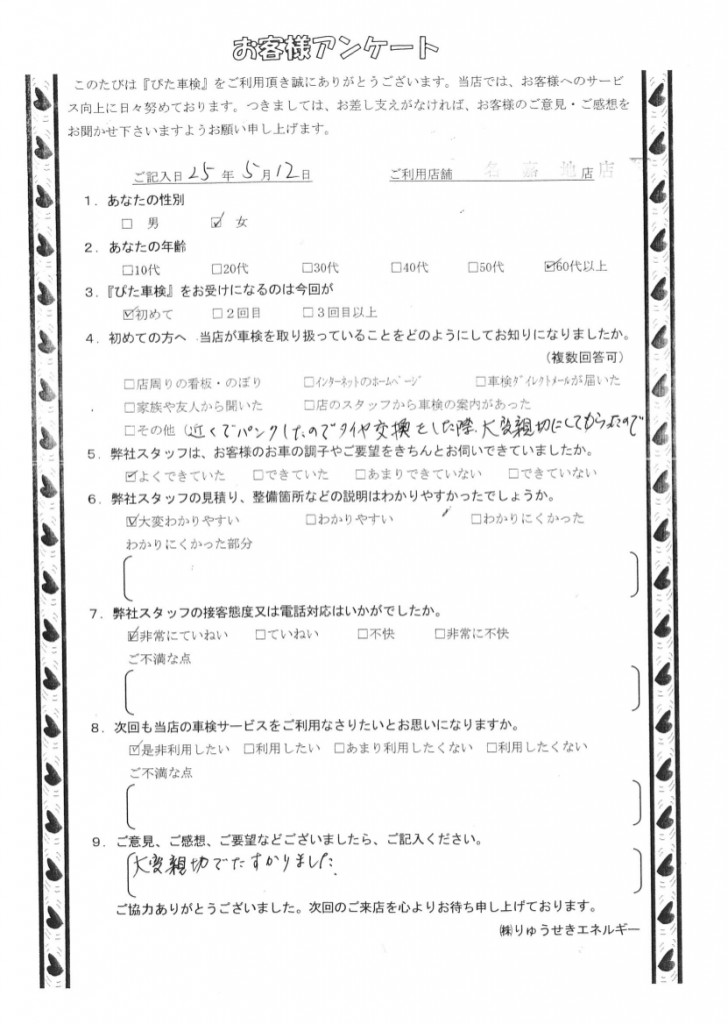 お客様アンケート
このたびは『ぴた車検』をご利用頂き誠にありがとうございます。当店では、お客様へのサービ
ス向上に日々努めております。つきましては、お差し支えがなければ、お客様のご意見・ご感想を
お聞かせ下さいますようお願い申し上げます。
ご記入日 25 年 5月 12日 ご利用店舗 名嘉地店 店
1．あなたの性別
□ 男 ☑ 女
2．あなたの年齢
□10代 □20代 □30代 □40代 □50代 ☑60代以上
3．『ぴた車検』をお受けになるのは今回が
☑初めて □２回目 □３回目以上
4．初めての方へ 当店が車検を取り扱っていることをどのようにしてお知りになりましたか。
（複数回答可）
□店周りの看板・のぼり □ｲﾝﾀｰﾈｯﾄのﾎｰﾑﾍﾟｰｼﾞ □車検ﾀﾞｲﾚｸﾄﾒｰﾙが届いた
□家族や友人から聞いた □店のスタッフから車検の案内があった
□その他（近くでパンクしたのでタイヤ交換をした際、大変親切にしてもらったので
5．弊社スタッフは、お客様のお車の調子やご要望をきちんとお伺いできていましたか。
☑よくできていた □できていた □あまりできていない □できていない
6．弊社スタッフの見積り、整備箇所などの説明はわかりやすかったでしょうか。
☑大変わかりやすい □わかりやすい □わかりにくかった
わかりにくかった部分
7．弊社スタッフの接客態度又は電話対応はいかがでしたか。
☑非常にていねい □ていねい □不快 □非常に不快
ご不満な点
8．次回も当店の車検サービスをご利用なさりたいとお思いになりますか。
☑是非利用したい □利用したい □あまり利用したくない □利用したくない
ご不満な点
9．ご意見、ご感想、ご要望などございましたら、ご記入ください。
大変親切でたすかりました.
ご協力ありがとうございました。次回のご来店を心よりお待ち申し上げております。
㈱りゅうせきエネルギー